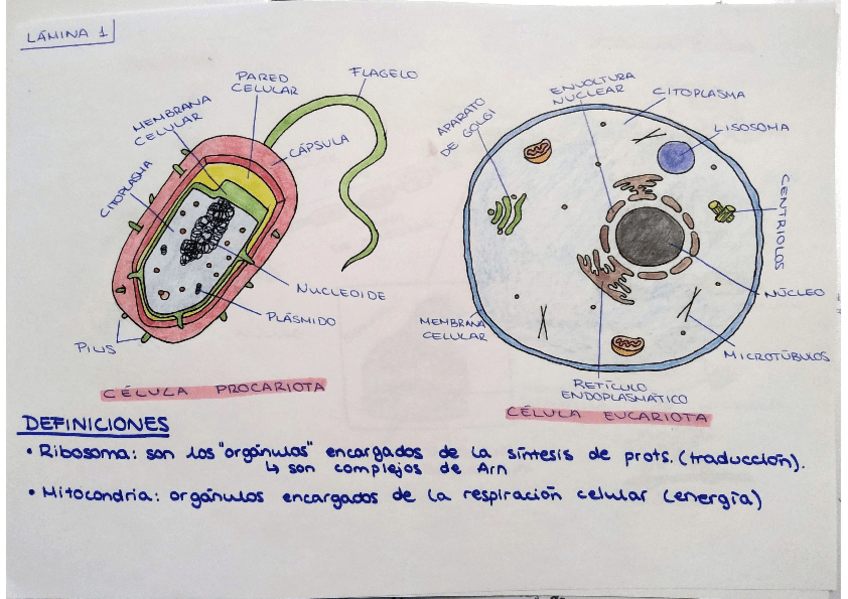 LÁMINA 1
PARED
CELULAR
FLAGELO
MEMBRANA
CELULAR
CÁPSULA
CITOPLASMA
NUCLEOIDE
PLÁSMIDO
PILUS
CÉLULA PROCARIOTA
ENVOLTURA
NUCLEAR
CITOPLASMA
APARATO
DE GOLGI
LISOSOMA
CENTRIOLOS
NÚCLEO
MEMBRANA
CELULAR
MICROTÚBULOS
RETÍCULO
ENDOPLASMÁTICO
CÉLULA EUCARIOTA
DEFINICIONES
• Ribosoma: son los "orgánulos" encargados de la síntesis de prots. (traducción).
↳ son complejos de Arn
• Mitocondria: orgánulos encargados de la respiración celular (energía)